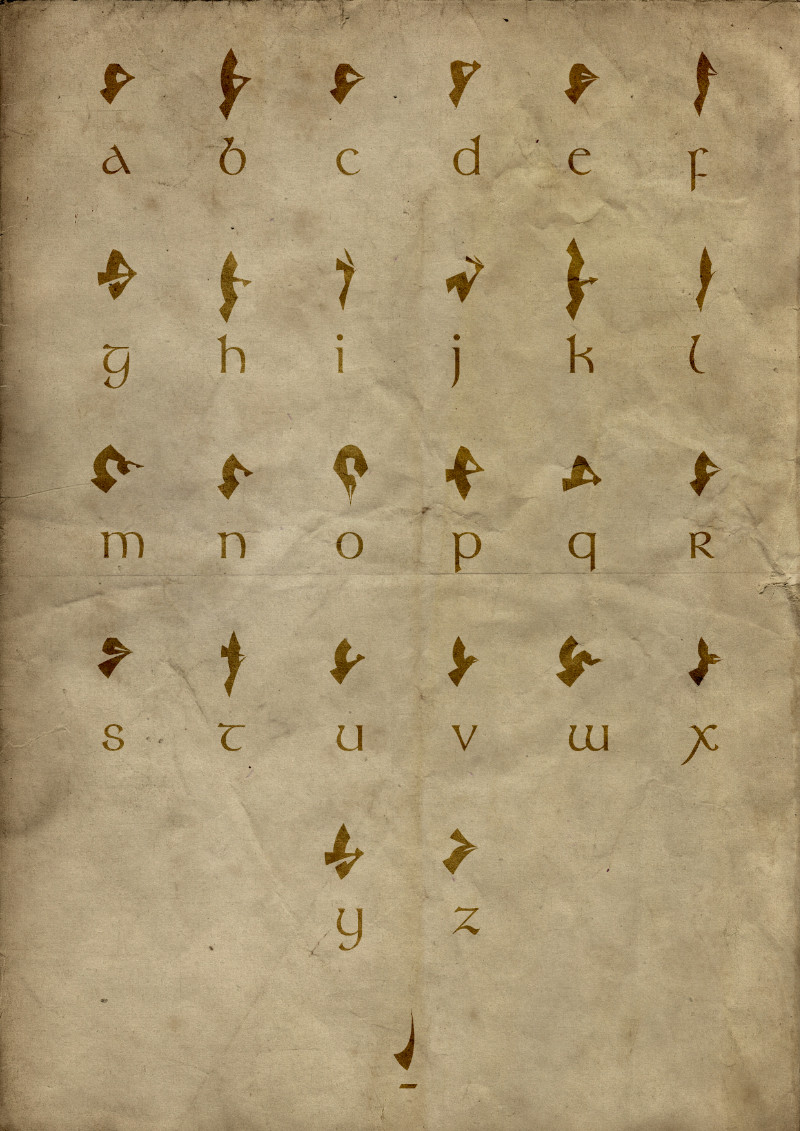 a b c d e f
g h i j k l
m n o p q r
s t u v w x
y z
_